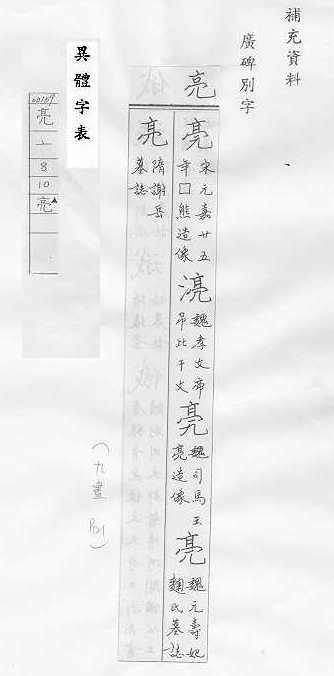 補充資料
廣碑別字
亮
亮
宋元嘉廿五
年□熊造像
湸
魏孝文帝
吊比干文
亮
魏司馬王
亮造像
亮
魏元壽妃
麹氏墓誌
亮
隋謝岳
墓誌
異體字表
00169
亮
亠
8
10
亮▲
(九畫 P.91)